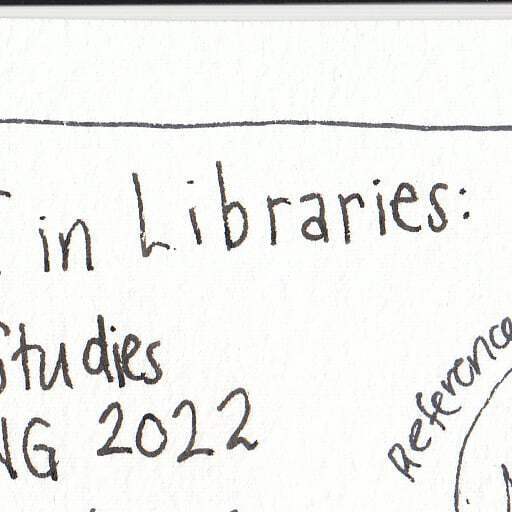 in Libraries:
Studies
NG 2022
Reference